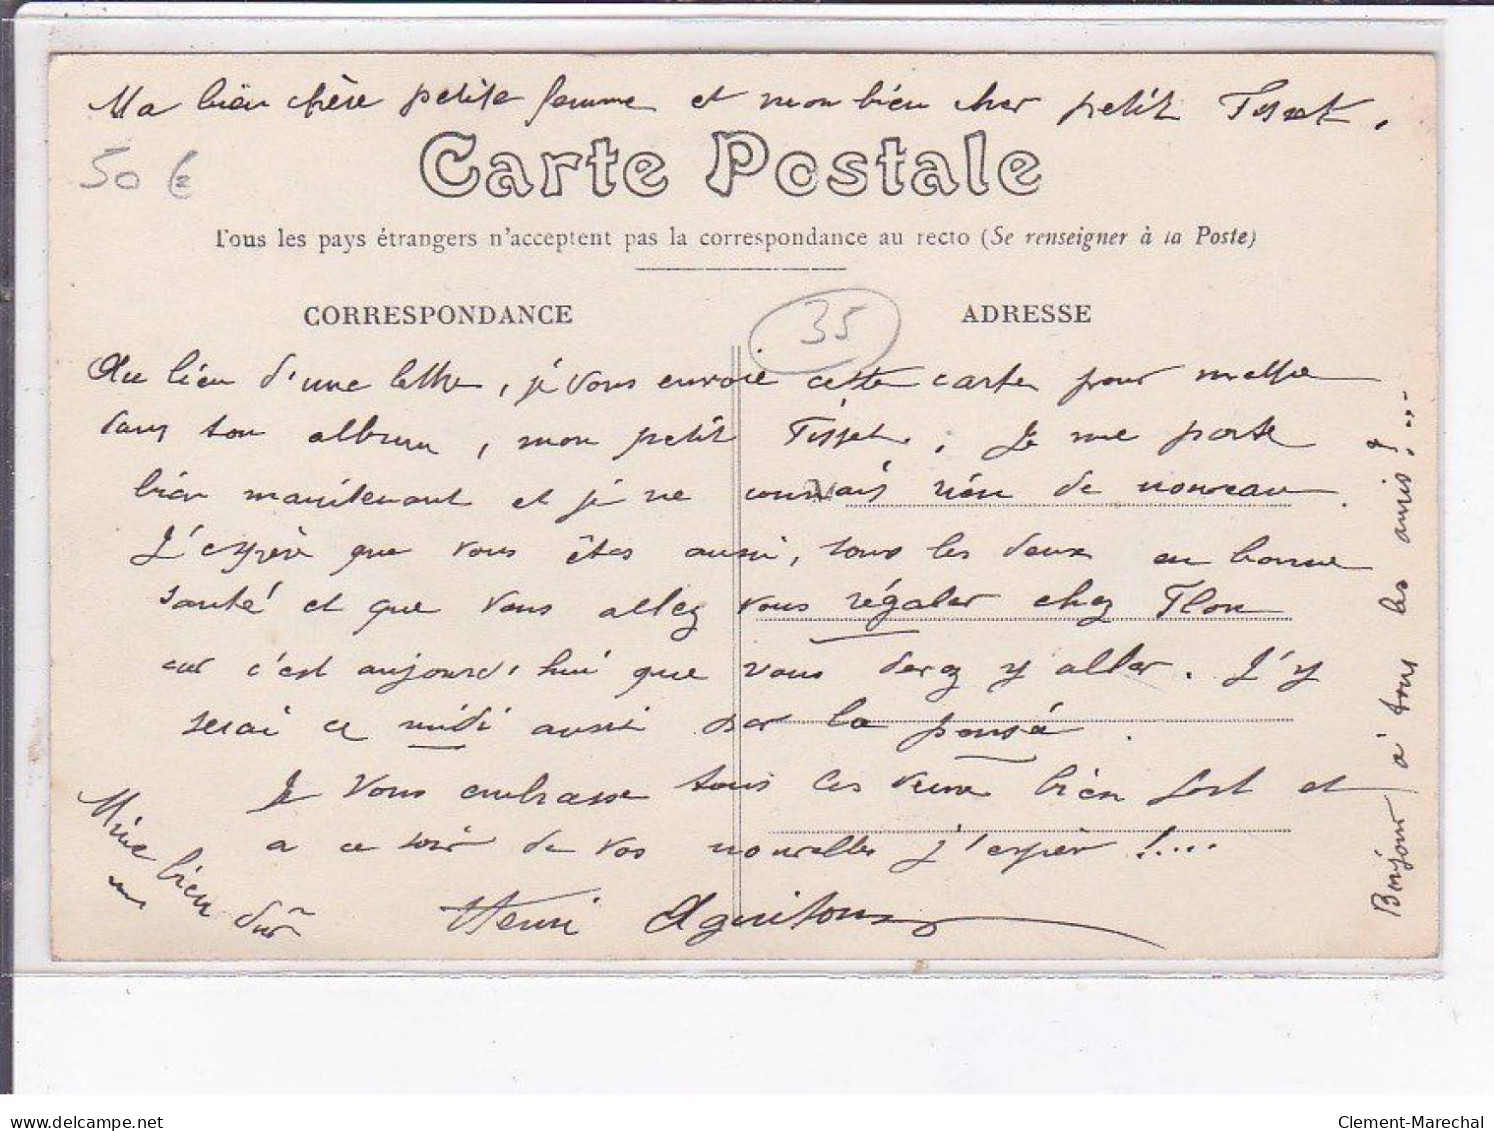 Ma bien chère petite femme et mon bien cher petit Tisset.
50 €
Carte Postale
Tous les pays étrangers n'acceptent pas la correspondance au recto (Se renseigner à la Poste)
CORRESPONDANCE
35
ADRESSE
Au lieu d'une lettre, je vous envoie cette carte pour mettre
dans ton album, mon petit Tisset. Je me porte
bien maintenant et je ne connais rien de nouveau.
J'espère que vous êtes aussi, tous les deux en bonne
santé et que vous allez vous régaler chez Flon
car c'est aujourd'hui que vous devez y aller. J'y
serai ce midi aussi par la pensé.
Je vous embrasse tous les deux bien fort et
a ce soir de vos nouvelles j'espère !....
Henri Aguitoux
bien sûr
Bonjour à tous les amis !...
Clement-Marechal
delcampe.net